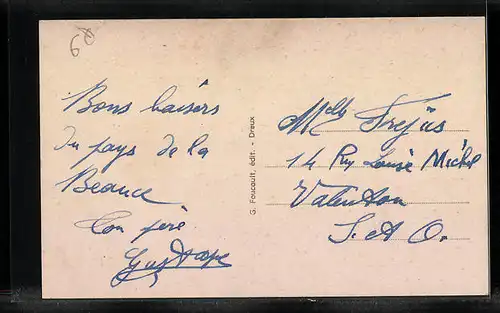 60
Bons baisers
du pays de la
Beauce
Ton père
Gustave
G. Foucault, édit. - Dreux
Melle Frejus
14 Rue Louise Michel
Valenton
S. et O.